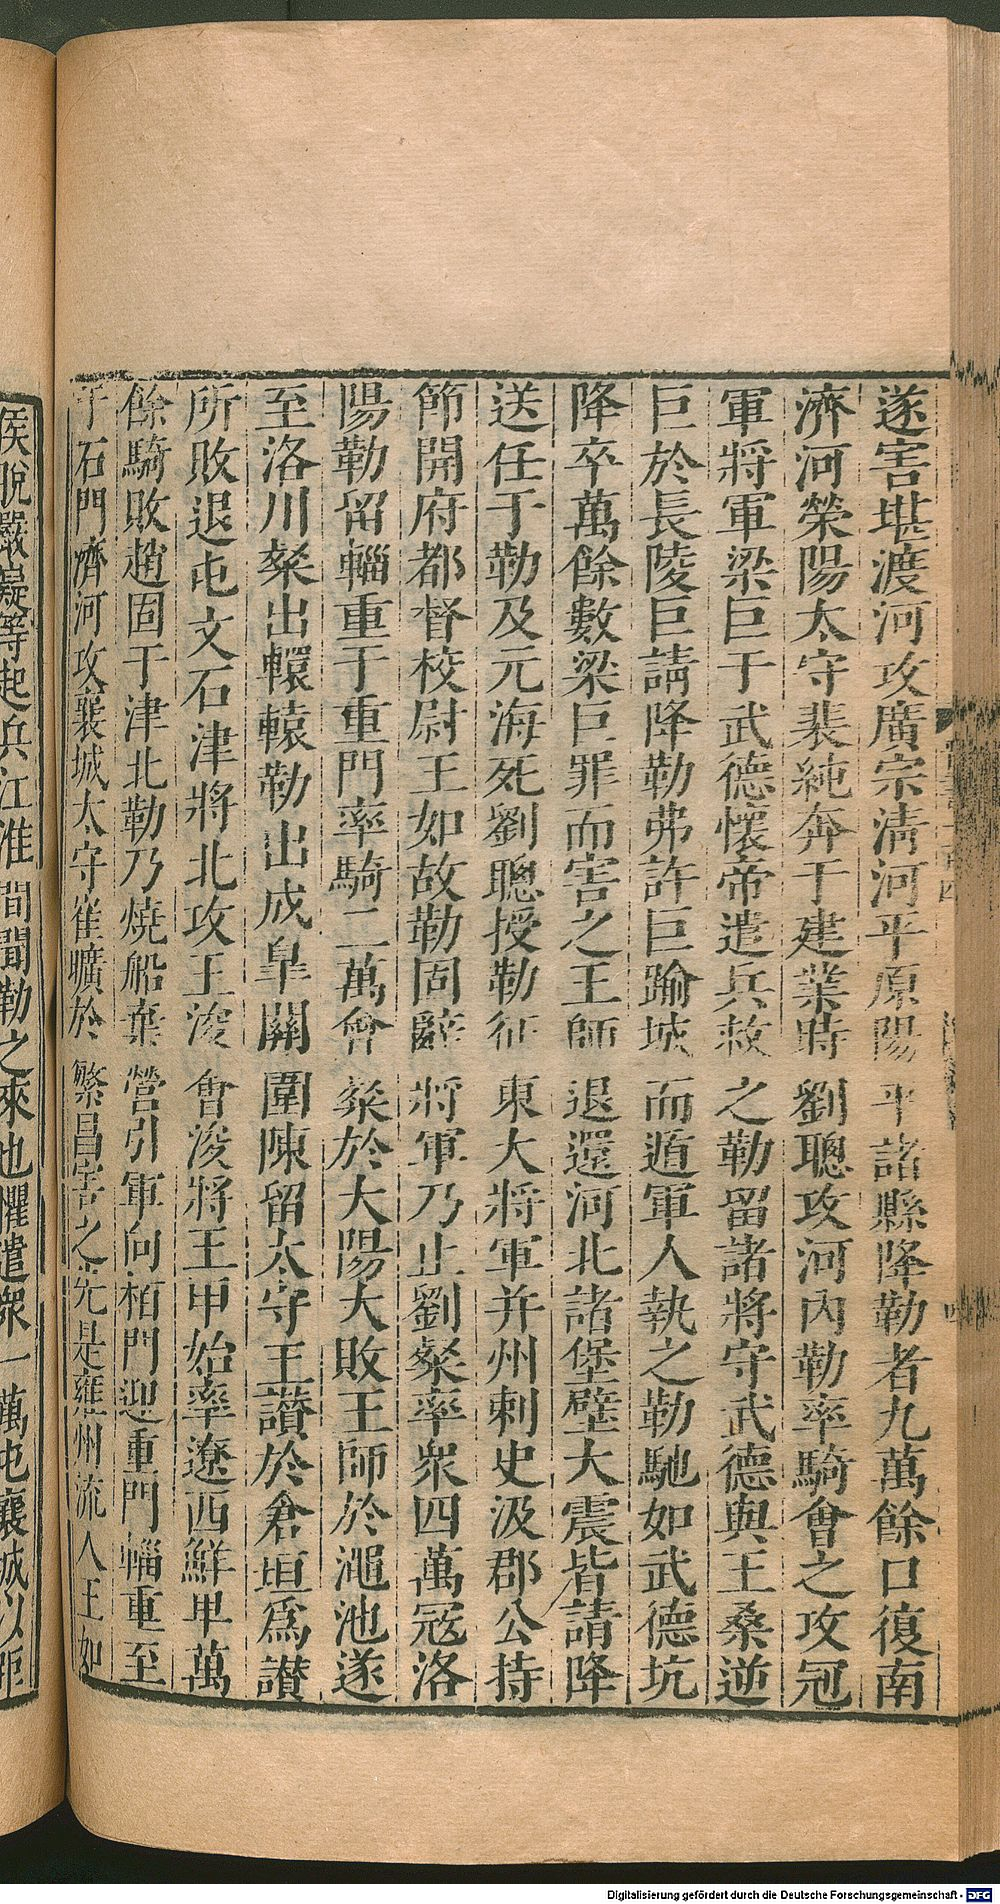 遂害堪渡河攻廣宗清河平原陽平諸縣降勒者九萬餘口復南
濟河滎陽太守裴純奔于建業時劉聰攻河內勒率騎會之攻冠
軍將軍梁巨于武德懷帝遣兵救之勒留諸將守武德與王桑逆
巨於長陵巨請降勒弗許巨踰城而遁軍人執之勒馳如武德坑
降卒萬餘數梁巨罪而害之王師退還河北諸堡壁大震皆請降
送任于勒及元海死劉聰授勒征東大將軍并州刺史汲郡公持
節開府都督校尉王如故勒固辭將軍乃止劉粲率眾四萬冦洛
陽勒留輜重于重門率騎二萬會粲於大陽大敗王師於澠池遂
至洛川粲出轘轅勒出成臯關圍陳留太守王讃於倉垣為讃
所敗退屯文石津將北攻王浚會浚將王甲始率遼西鮮卑萬
餘騎敗趙固于津北勒乃燒船棄營引軍向柏門迎重門輜重至
于石門濟河攻襄城太守崔曠於繁昌害之先是雍州流人王如
侯脫嚴嶷等起兵江淮間聞勒之來也懼遣眾一萬屯襄城以距
Digitalisierung gefördert durch die Deutsche Forschungsgemeinschaft - DFG